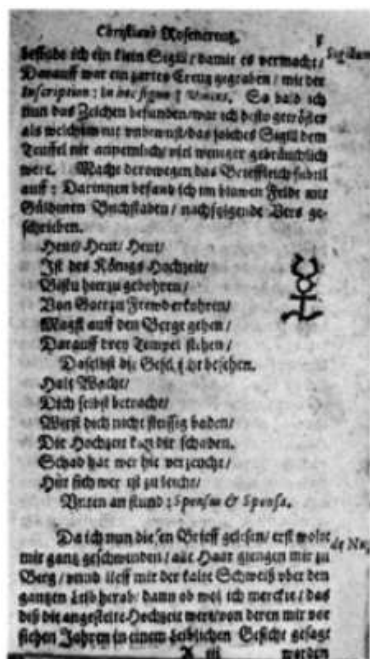 Christiani Rosencreutz. 5
befande ich ein klein Sigill / damit es vermacht /
Darauff war ein zartes Creutz gegraben / mit der
Inscription: in hoc signo † Vinces. So bald ich
nun das Zeichen befunden / war ich desto getröster
als welchem nit vnbewust / das solches Sigill dem
Teuffel nit annemlich / viel weniger gebräuchlich
were. Mache derowegen das Brieffleich subtil
auff: Darinnen befand ich im blawen Felde mit
Güldenen Buchstaben / nachfolgende Vers ge-
schrieben.
Heut / Heut / Heut /
Ist des Königs Hochzeit /
Bistu hierzu gebohren /
Von Gott zu Frewd erkohren /
Magst auff den Berge gehen /
Darauff drey Tempel stehen /
Daselbst die Geschicht besehen.
Halt Wacht /
Dich selbst betracht /
Wirst dich nicht fleissig baden /
Die Hochzeit kan dir schaden.
Schad hat wer hie verzeucht /
Hüt sich wer ist zu leicht /
Vnten an stund: Sponsus & Sponsa.
Da ich nun diesen Brieff gelesen / erst wolte
mir gantz geschwinden / alle Haar giengen mir zu
Berg / vnnd lieff mir der kalte Schweiß vber den
gantzen Leib herab / dann ob wol ich merckte / das
diß die angestelte Hochzeit were / von deren mir vor
sieben Jahren in einem Leiblichen Gesicht gesagt
A iii worden